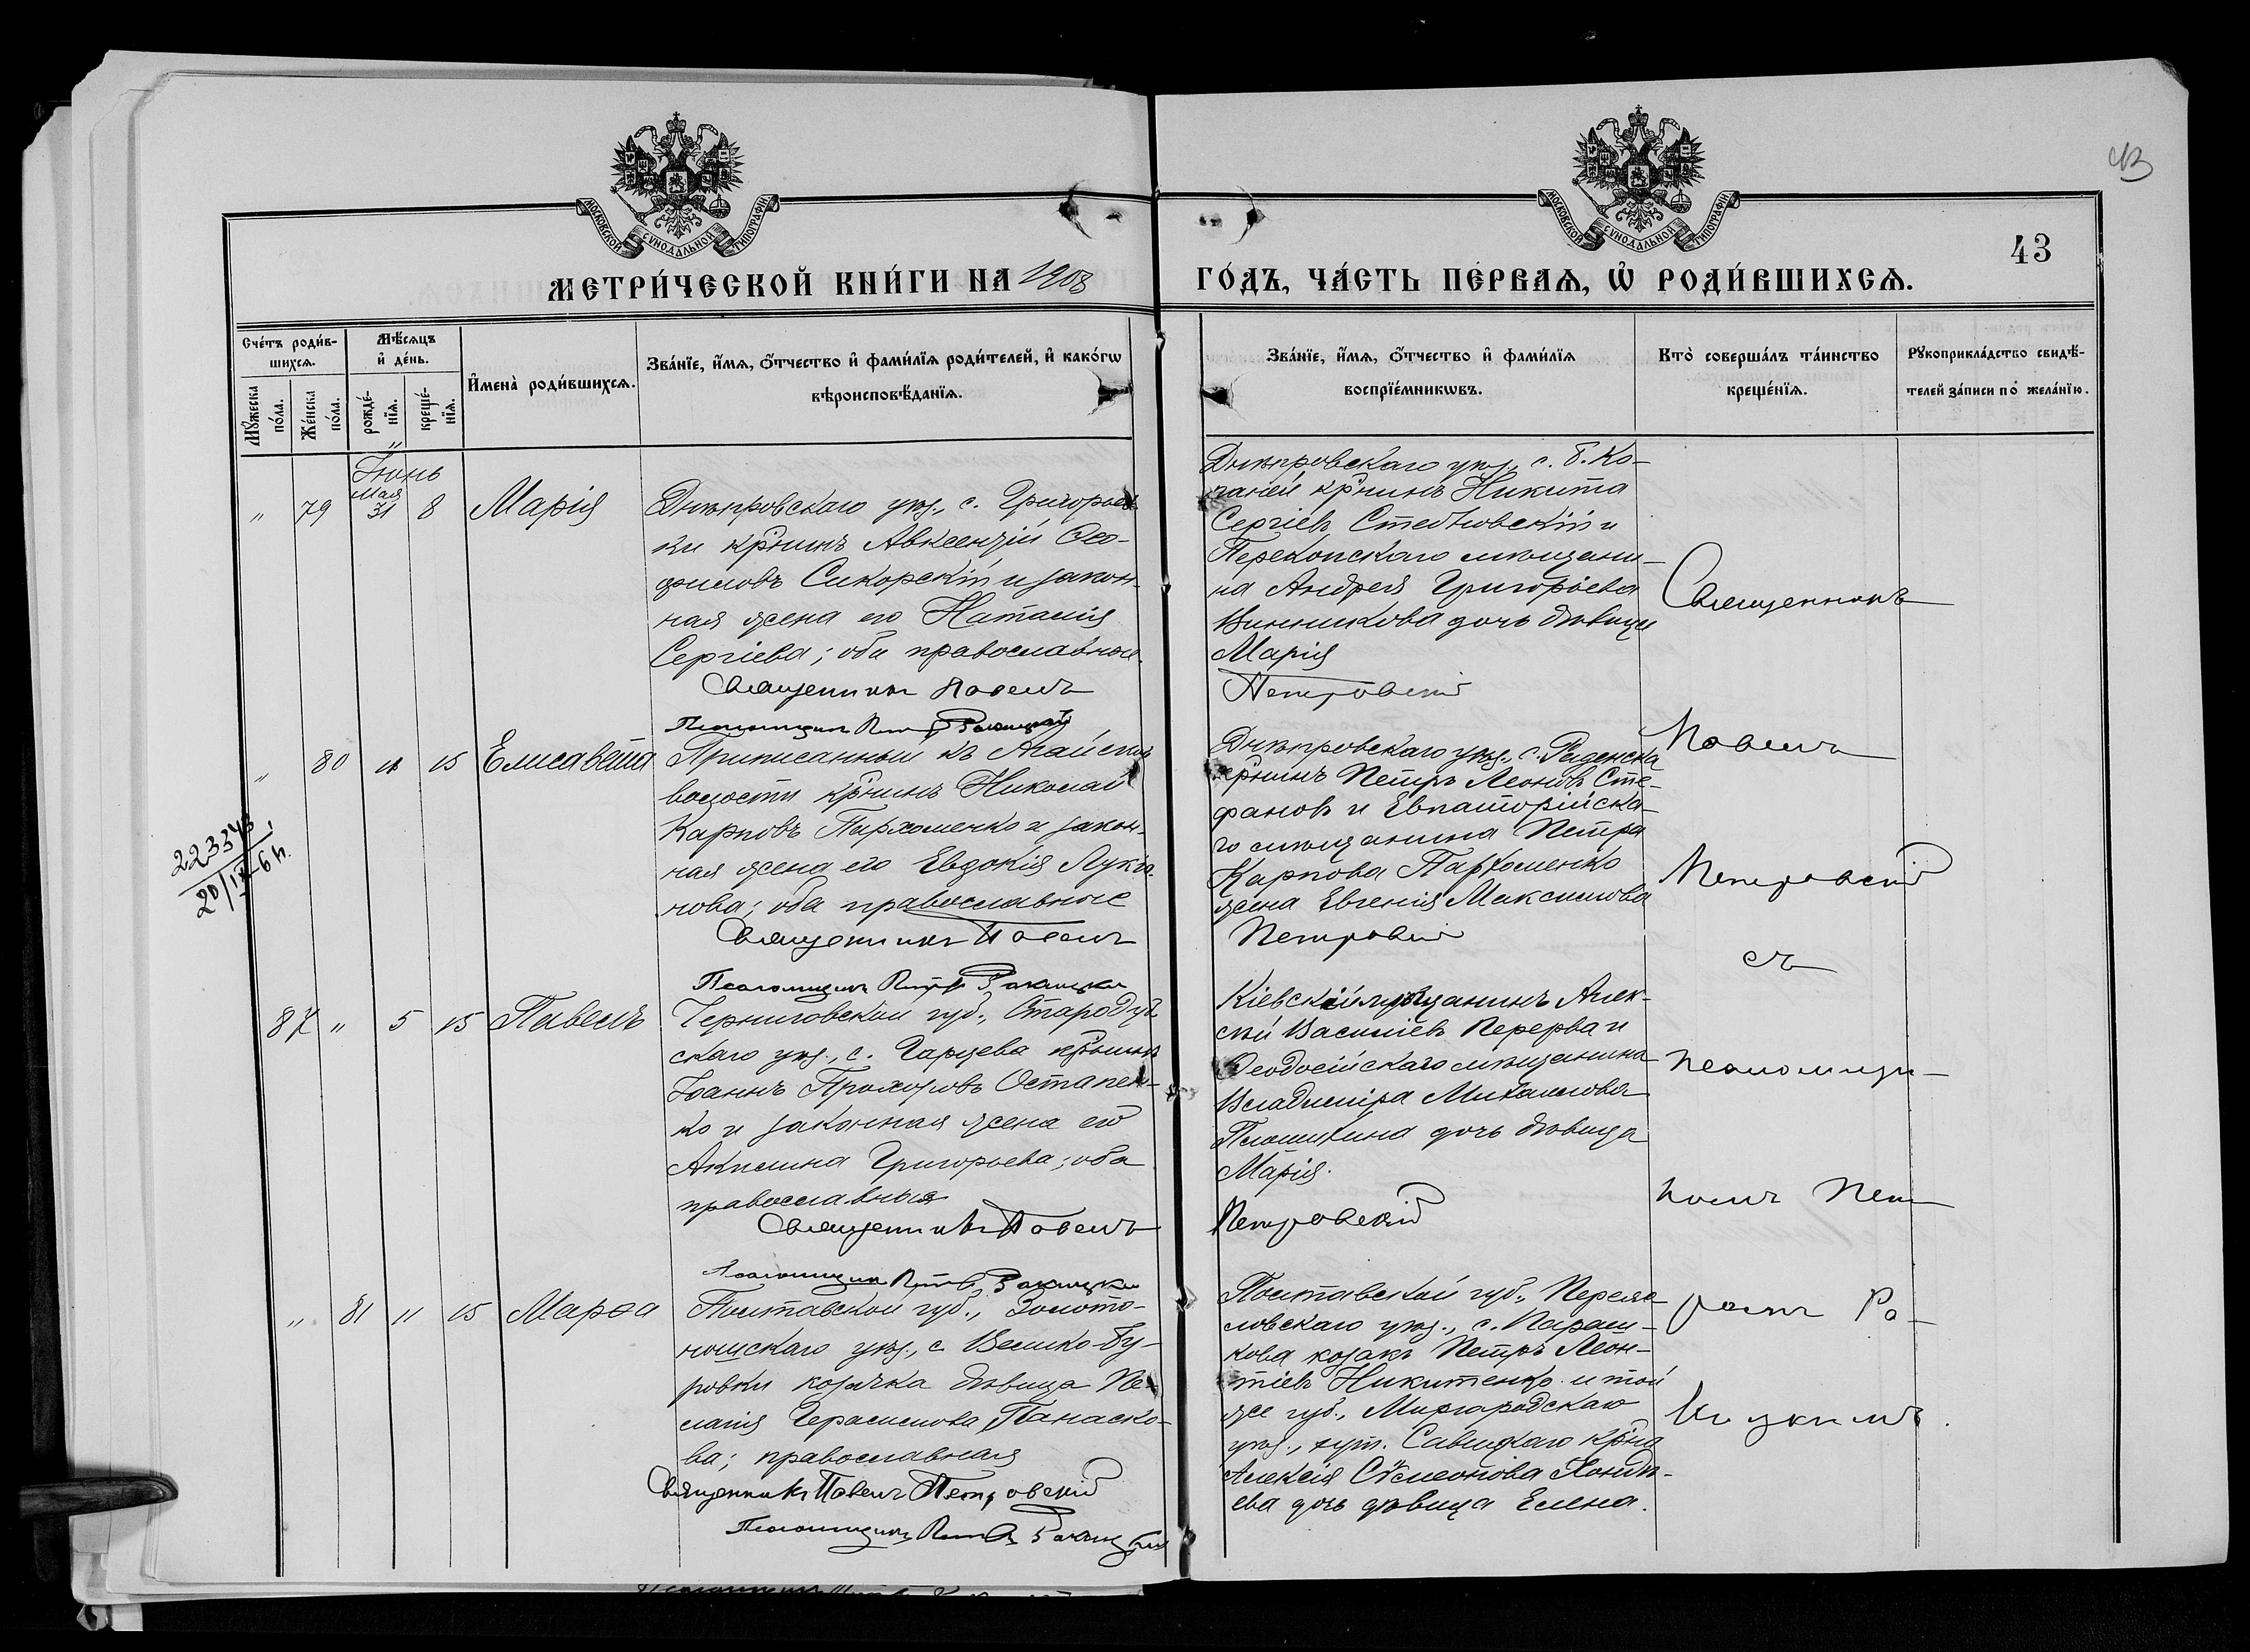 43
МОСКОВСКОЙ СУНОДАЛЬНОЙ ТИПОГРАФІИ
МОСКОВСКОЙ СУНОДАЛЬНОЙ ТИПОГРАФІИ
43
МЕТРИ́ЧЕСКОЙ КНИ́ГИ НА 1908
ГО́ДЪ, ЧА́СТЬ ПЕ́РВАѦ, Ѡ҆ РОДИ́ВШИХСѦ.
Сче́тъ роди́в-
шихсѧ.
Мѣ́сѧцъ
и҆ де́нь.
Мꙋ́жеска
по́ла.
Же́нска
по́ла.
рожде́-
нїѧ.
креще́-
нїѧ.
И҆мена̀ роди́вшихсѧ.
Зва́нїе, и҆́мѧ, ѻ҆́тчество и҆ фами́лїѧ роди́телей, и҆ како́гѡ
вѣроисповѣ́данїѧ.
Зва́нїе, и҆́мѧ, ѻ҆́тчество и҆ фами́лїѧ
воспрїе́мникѡвъ.
Кто̀ соверша́лъ та́инство
креще́нїѧ.
Рꙋкоприкла́дство свидѣ́-
телей за́писи по жела́нїю.
Іюнь
" 79 Мая 31 8 Марія
Днѣпровскаго уѣз., с. Григорьев
ки кр̃нинъ Авксентій Ѳео-
филовъ Сикорскій и закон-
ная жена его Наталія
Сергіева; оба православные.
Священникъ Павелъ
Псаломщикъ Петръ Ракицкій
Днѣпровскаго уѣз., с. Б. Ко-
паней кр̃нинъ Никита
Сергіевъ и
Перекопскаго мѣщани-
на Андрея Григорьева
Винникова дочь дѣвица
Марія
Петровскій
Священникъ
" 80 11 15 Елисавета
Приписанный къ Агайской
волости кр̃нинъ Николай
Карповъ Пархоменко и закон-
ная жена его Евдокія Лукья-
нова; оба православные
Священникъ Павелъ
Псаломщикъ Петръ Ракицкій
Днѣпровскаго уѣз., с. Раденска
кр̃нинъ Петръ Леоновъ Сте-
фановъ и Евпаторійска-
го мѣщанина Петра
Карпова Пархоменко
жена Евгенія Максимова
Петровскій
Павелъ
Петровскій
съ
223343
20/IX-64.
87 " 5 15 Павелъ
Черниговской губ., Стародуб
скаго уѣз., с. Гарцева кр̃нинъ
Іоаннъ Прохоровъ Остапен-
ко и законная жена его
Акилина Григорьева; оба
православные
Священникъ Павелъ
Псаломщикъ Петръ Ракицкій
Кіевскій мѣщанинъ Алек-
сѣй Васильевъ Перерва и
Ѳеодосійскаго мѣщанина
Владиміра Михаилова
Плошкина дочь дѣвица
Марія.
Петровскій
псаломщи-
комъ Пет-
" 81 11 15 Марѳа
Полтавской губ., Золото-
ношскаго уѣз., с. Велико-Бу-
ровки козачка дѣвица Пе-
лагія Герасимова Панаско-
ва; православная
Священникъ Павелъ Петровскій
Псаломщикъ Петръ Ракицкій
Полтавской губ., Перея-
словскаго уѣз., с.
козакъ Петръ Леон-
тіевъ Никитенко и той
же губ., Миргородскаго
уѣз., хут. Савицкаго кр̃на
Алексѣя Сѵмеонова
ева дочь дѣвица Елена.
ромъ Ра-
кицкимъ.